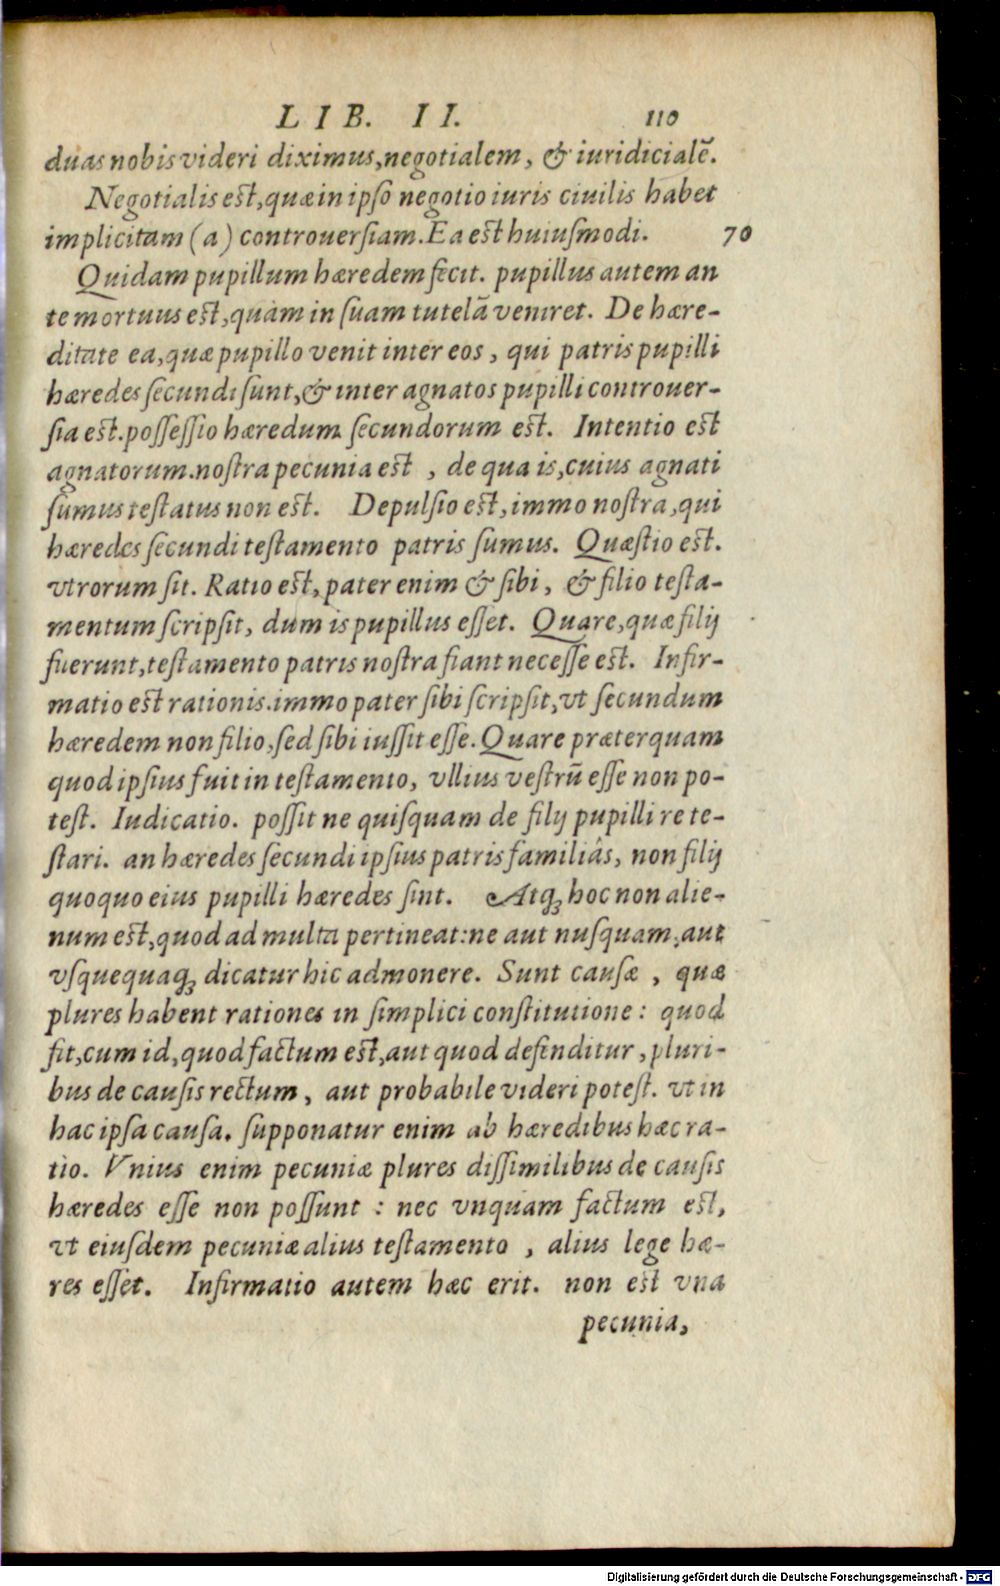 LIB. II. 110
duas nobis videri diximus, negotialem, & iuridicialē.
Negotialis est, quæ in ipso negotio iuris ciuilis habet
implicitam (a) controuersiam. Ea est huiusmodi. 70
Quidam pupillum hæredem fecit. pupillus autem an
te mortuus est, quàm in suam tutelā veniret. De hære-
ditate ea, quæ pupillo venit inter eos, qui patris pupilli
hæredes secundi sunt, & inter agnatos pupilli controuer-
sia est. possessio hæredum secundorum est. Intentio est
agnatorum. nostra pecunia est, de qua is, cuius agnati
sumus testatus non est. Depulsio est, immo nostra, qui
hæredes secundi testamento patris sumus. Quæstio est.
vtrorum sit. Ratio est, pater enim & sibi, & filio testa-
mentum scripsit, dum is pupillus esset. Quare, quæ filij
fuerunt, testamento patris nostra fiant necesse est. Infir-
matio est rationis. immo pater sibi scripsit, vt secundum
hæredem non filio, sed sibi iussit esse. Quare præterquam
quod ipsius fuit in testamento, vllius vestrū esse non po-
test. Iudicatio. possit ne quisquam de filij pupilli re te-
stari. an hæredes secundi ipsius patris familiâs, non filij
quoquo eius pupilli hæredes sint. Atq; hoc non alie-
num est, quod ad multa pertineat: ne aut nusquam, aut
vsquequaq; dicatur hic admonere. Sunt causæ, quæ
plures habent rationes in simplici constitutione: quod
fit, cum id, quod factum est, aut quod defenditur, pluri-
bus de causis rectum, aut probabile videri potest. vt in
hac ipsa causa. supponatur enim ab hæredibus hæc ra-
tio. Vnius enim pecuniæ plures dissimilibus de causis
hæredes esse non possunt: nec vnquam factum est,
vt eiusdem pecuniæ alius testamento, alius lege hæ-
res esset. Infirmatio autem hæc erit. non est vna
pecunia,
Digitalisierung gefördert durch die Deutsche Forschungsgemeinschaft - DFG